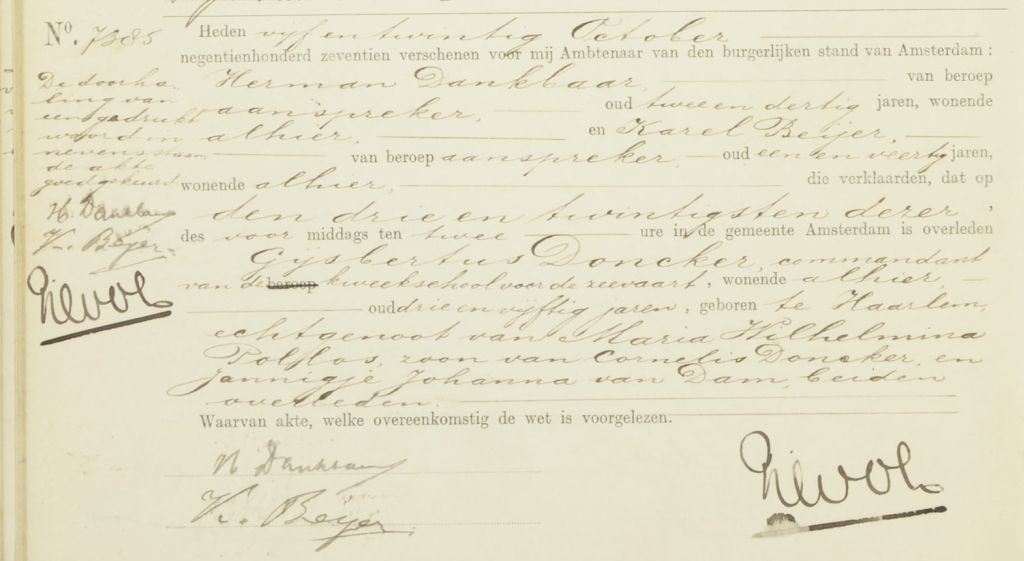 No. 7385
Heden vijf en twintig October
negentienhonderd zeventien verschenen voor mij Ambtenaar van den burgerlijken stand van Amsterdam :
Herman Dankbaar, van beroep
aanspreker, oud twee en dertig jaren, wonende
alhier, en Karel Beijer,
van beroep aanspreker oud een en veertig jaren,
wonende alhier, die verklaarden, dat op
den drie en twintigsten dezer,
des voor middags ten twee ure in de gemeente Amsterdam is overleden
Gijsbertus Doncker, commandant
van de beroep kweekschool voor de zeevaart, wonende alhier,
oud drie en vijftig jaren, geboren te Haarlem,
echtgenoot van Maria Wilhelmina
zoon van Cornelis Doncker, en
Jannigje Johanna van Dam, beiden
overleden.
Waarvan akte, welke overeenkomstig de wet is voorgelezen.
De doorha-
ling van
een gedrukt
woord in
nevenstaan
de akte
goedgekeurd
H. Dankbaar
K. Beijer
H Dankbaar
K. Beijer